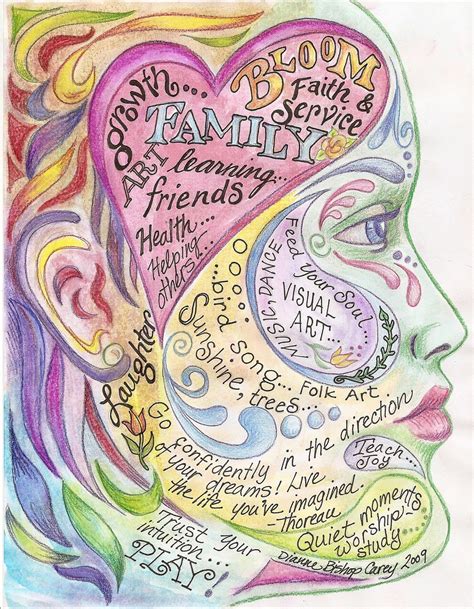 growth....
BLOOM
Faith &
Service
FAMILY
ART
learning...
friends
Health...
Helping
others!
Feed Your Soul...
VISUAL
ART...
MUSIC, DANCE
...bird song...
Sunshine, trees...
Folk Art
Laughter
Go confidently in the direction
of your dreams! Live
the life you've imagined.
-Thoreau
Teach-
Joy
Quiet moments
worship-
study...
Trust Your
intuition...
PLAY!
Dianne Bishop Carey 2009